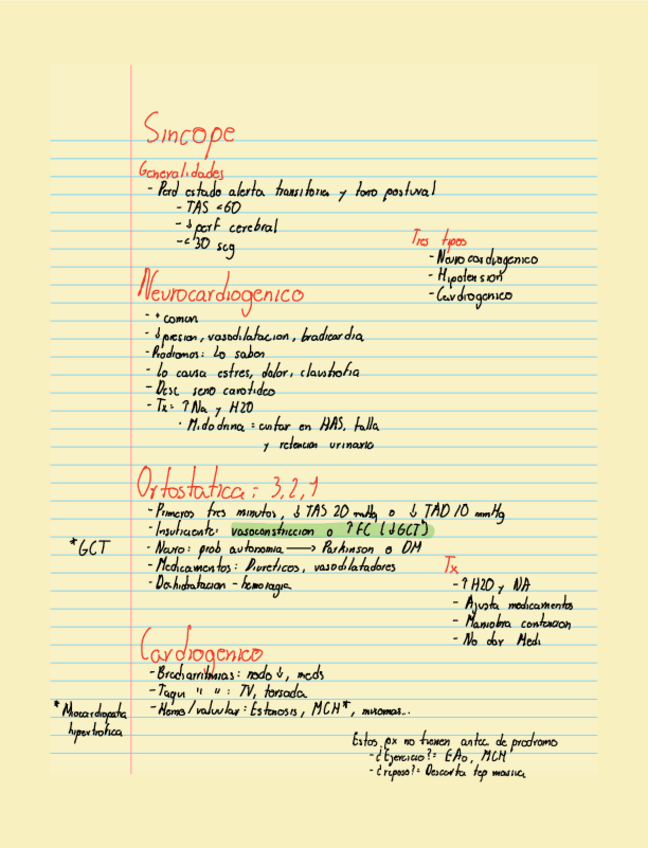 Sincope
Generalidades
- Perd estado alerta transitoria y tono postural
- TAS <60
- ↓ perf cerebral
- < 30 seg
Tres tipos
- Neurocardiogenico
- Hipotensión
- Cardiogenico
Neurocardiogenico
- + comun
- ↓ presion, vasodilatacion, bradicardia
- Prodromos: Lo saben
- Lo causa estres, dolor, claustrofia
- Desc seno carotideo
- Tx: ↑ Na y H2O
· Midodrina: cuitar en HAS, falla
y retencion urinario
Ortostatica: 3,2,1
- Primeros tres minutos, ↓ TAS 20 mmHg o ↓ TAD 10 mmHg
- Insuficiente: vasoconstriccion o ↑ FC (↓GCT)
*GCT
- Neuro: prob autonomia → Parkinson o DM
- Medicamentos: Diureticos, vasodilatadores
- Deshidratacion - hemoragia
Tx
- ↑ H2O y NA
- Ajusta medicamentos
- Maniobra contencion
- No dar Medi
Cardiogenico
- Bradiarritmias: nodo ↓, meds
- Taqui " " : TV, torsada
- Hemo/valvular: Estenosis, MCH*, mixomas...
* Miocardiopatia
hipertrofica
Estos px no tienen antec. de prodromo
- ¿Ejercicio?= EAo, MCH
- ¿reposo?= Descarta tep masiva